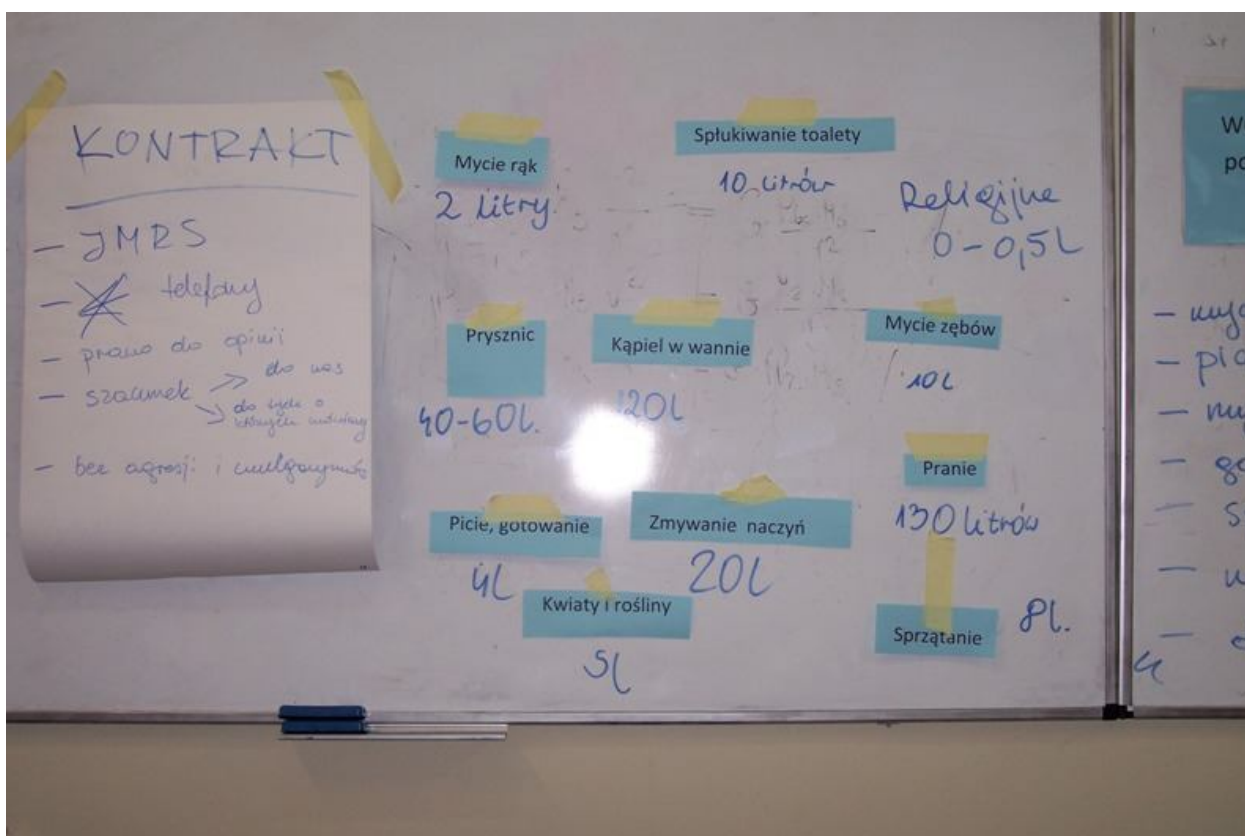 KONTRAKT
- JMRS
- telefony
- prawo do opinii
- szacunek → do nas
→ do tych o
których mówimy
- bez agresji i
Mycie rąk
2 litry
Spłukiwanie toalety
10 litrów
Religijne
0-0,5L
Prysznic
40-60L.
Kąpiel w wannie
120L
Mycie zębów
10L
Pranie
130 litrów
Picie, gotowanie
4L
Zmywanie naczyń
20L
Kwiaty i rośliny
5L
Sprzątanie
8L.